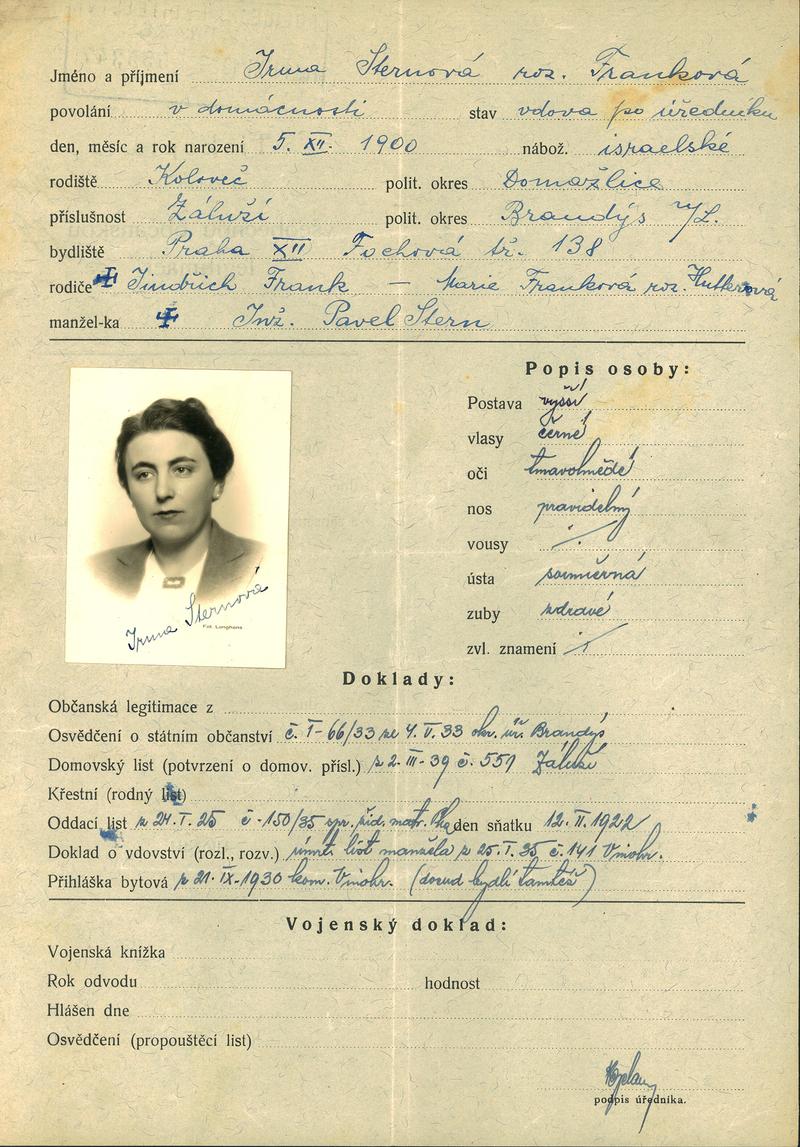 Jméno a příjmení Irma Sternová roz. Franková
povolání v domácnosti stav vdova po úředníku
den, měsíc a rok narození 5. XII. 1900 nábož. israelské
rodiště Koloveč polit. okres Domažlice
příslušnost Záluží polit. okres Brandýs n/L.
bydliště Praha XII Fochová tř. 138
rodiče Jindřich Frank — Marie Franková roz. Hutterová
manžel-ka Inž. Pavel Stern
Popis osoby:
Postava vyšší
vlasy černé
oči tmavohnědé
nos pravidelný
vousy
ústa souměrná
zuby zdravé
zvl. znamení
Irma Sternová
Fot. Langhans
Doklady:
Občanská legitimace z
Osvědčení o státním občanství č. I-66/33 ze 4. V. 33 okr. úř. Brandýs
Domovský list (potvrzení o domov. přísl.) z 2. III-39 č. 551 Záluží
Křestní (rodný list)
Oddací list z 24. I. 25 č-150/35 žid. matr. den sňatku 12. II. 1922
Doklad o vdovství (rozl., rozv.) úmrt. list manžela z 25. I. 35 č. 141 Vinohr.
Přihláška bytová z 21. IX-1930 kom. Vinohr. (dosud bydlí tamtéž)
Vojenský doklad:
Vojenská knížka
Rok odvodu hodnost
Hlášen dne
Osvědčení (propouštěcí list)
podpis úředníka.